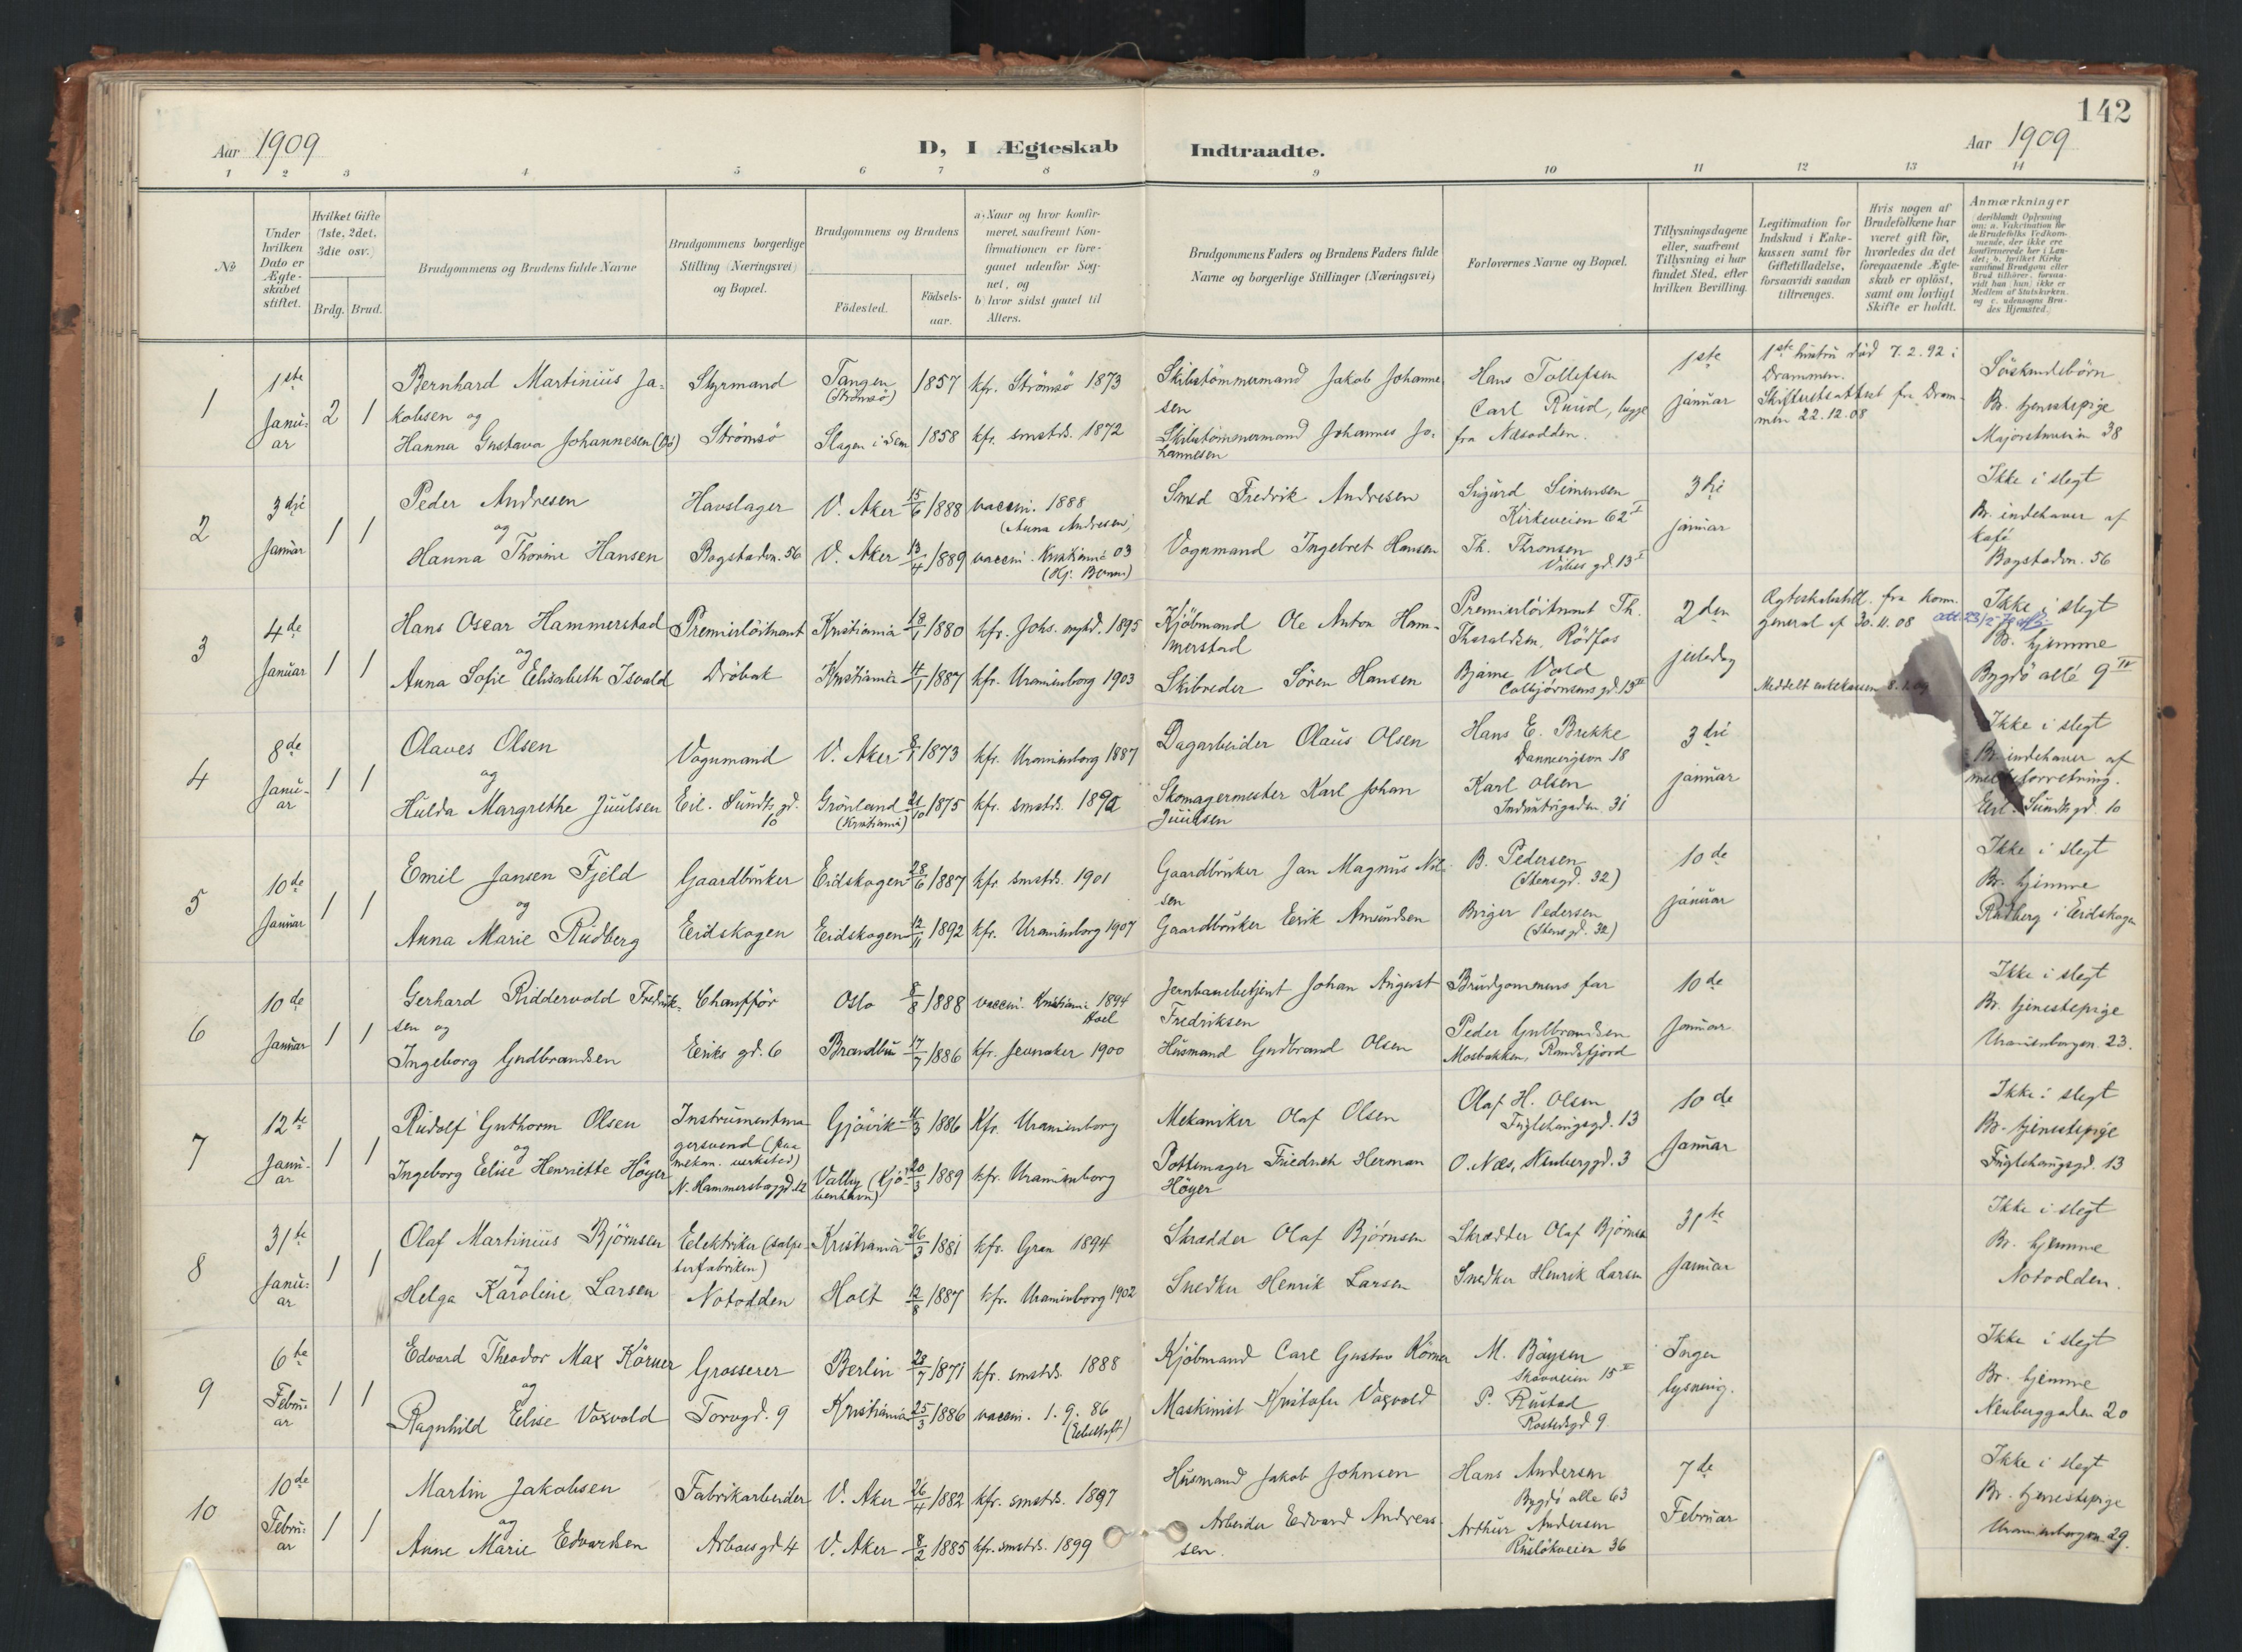 142
Aar 1909
D, I Ægteskab Indtraadte.
Aar 1909
1 2 3 4 5 6 7 8 9 10 11 12 13 14
No
Under hvilken Dato er Ægteskabet stiftet.
Hvilket Gifte (1ste, 2det, 3die osv.)
Brdg. Brud.
Brudgommens og Brudens fulde Navne
Brudgommens borgerlige Stilling (Næringsvei) og Bopæl.
Brudgommens og Brudens
Födested.
Födsels-aar.
a) Naar og hvor konfir-
meret, saafremt Kon-
firmationen er fore-
gaaet udenfor Sog-
net, og
b) hvor sidst gaaet til
Alters.
Brudgommens Faders og Brudens Faders fulde
Navne og borgerlige Stillinger (Næringsvei)
Forlovernes Navne og Bopæl.
Tillysningsdagene
eller, saafremt
Tillysning ei har
fundet Sted, efter
hvilken Bevilling.
Legitimation for
Indskud i Enke-
kassen samt for
Giftetilladelse,
forsaavidt saadan
tiltrænges.
Hvis nogen af
Brudefolkene har
været gift för,
hvorledes da det
foregaaende Ægte-
skab er oplöst,
samt om lovligt
Skifte er holdt.
Anmærkninger
(deriblandt Oplysning
om: a. Vakcination for
de Brudefolks Vedkom-
mende, der ikke ere
konfirmerede her i Lan-
det; b. hvilket Kirke
samfund Brudgom eller
Brud tilhører, forsaa-
vidt han (hun) ikke er
Medlem af Statskirken,
og c. udensogns Bru-
des Hjemsted.)
1
1ste Januar
2 1
Bernhard Martinius Ja-
kobsen og
Hanna Gustava Johannesen
Styrmand
Strömsö
Tangen (Strömsö) 1857 kfr. Strömsö 1873
Slagen i Sem 1858 kfr. smstds. 1872
Skibstömmermand Jakob Johanne-
sen
Skibstömmermand Johannes Jo-
hannesen
Hans Tollefsen
Carl Ruud, begge
fra Næsodden.
1ste januar
1ste hustru död 7.2.92 i
Drammen.
Skifteretsattest fra Dram-
men 22.12.08
Söskendebörn
Br. tjenestepige
Majorstuveien 38
2
3die Januar
1 1
Peder Andresen
og
Hanna Thorine Hansen
Havslager
Bogstadvn. 56
V. Aker 15/6 1888 vaccin. 1888
(Anna Andresen)
V. Aker 13/4 1889 vaccin. Kristiania 03
Smed Fredrik Andresen
Vognmand Ingebret Hansen
Sigurd Simensen
Kirkeveien 62 I
Th. Thronsen
Vibes gd. 13 I
3die januar
Ikke i slegt
Br. indehaver af
kafé
Bogstadvn. 56
3
4de Januar
1 1
Hans Oscar Hammerstad
og
Anna Sofie Elisabeth Isvald
Premierlöitnant
Dröbak
Kristiania 18/1 1880 kfr. Johs. mgtd. 1895
Kristiania 4/1 1887 kfr. Uranienborg 1903
Kjöbmand Ole Anton Ham-
merstad
Skibreder Sören Hansen
Premierlöitnant Th.
Tharaldsen, Rödfos
Bjarne Vold
Colbjørnsens gd. 13
2den juledag
Ægteskabstill. fra Kom.
general af 30.11.08
Meddelt enkekassen 8.1.09
Ikke i slegt
Br. hjemme
Bygdö allé 9 IV
4
8de Januar
1 1
Olaves Olsen
og
Hulda Margrethe Juulsen
Vognmand
Eil. Sundts gd.
10
V. Aker 8/1 1873 kfr. Uranienborg 1887
Grönland (Kristiania) 21/10 1875 kfr. smstds.
Dagarbeider Olaus Olsen
Skomagermester Karl Johan
Juulsen
Hans E. Brekke
Dannevigsvn 18
Karl Olsen
Industrigaden 31
3die januar
Ikke i slegt
Br. indehaver af
melkeforretning.
Eil. Sundts gd. 10
5
10de Januar
1 1
Emil Jansen Fjeld
og
Anna Marie Rudberg
Gaardbruker
Eidskogen
Eidskogen 28/6 1887 kfr. smstds. 1901
Eidskogen 12/11 1892 kfr. Uranienborg 1907
Gaardbruker Jan Magnus Nil-
sen
Gaardbruker Erik Amundsen
B. Pedersen
(Stensgd. 32)
Birger Pedersen
(Stensgd. 32)
10de januar
Ikke i slegt
Br. hjemme
Rudberg i Eidskogen
6
10de Januar
1 1
Gerhard Riddervold Fredrik-
sen og
Ingeborg Gudbrandsen
Chaufför
Eeriks gd. 6
Oslo 8/8 1888 vaccin. Kristiania 1894
Brandbu 17/7 1886 kfr. Jevnaker 1900
Jernbanebetjent Johan August
Fredriksen
Husmand Gudbrand Olsen
Brudgommens far
Peder Gulbrandsen
Mosbakken, Randsfjord
10de Januar
Ikke i slegt
Br. tjenestepige
Uranienborgvn. 23.
7
12te Januar
1 1
Rudolf Guthorm Olsen
og
Ingeborg Elise Henriette Höyer
Instrumentma-
gersvend (paa
mekan. verksted)
N. Hammersborggd. 12
Gjövik 11/3 1886 Kfr. Uranienborg
Valby (Kjö-
benhavn) 20/3 1889 kfr. Uranienborg
Mekaniker Olaf Olsen
Pottemager Friedrich Herman
Höyer
Olaf H. Olsen
Fuglehaugsgd. 13
O. Næs, Neuberggd. 3
10de Januar
Ikke i slegt
Br. tjenestepige
Fuglehaugsgd. 13
8
31te Januar
1 1
Olaf Martinius Björnsen
og
Helga Karoline Larsen
Elektriker (salpe-
terfabriken)
Notodden
Kristiania 26/3 1881 kfr. Gran 1894
Holt 12/8 1887 kfr. Uranienborg 1902
Skrædder Olaf Bjørnsen
Snedker Henrik Larsen
Skrædder Olaf Bjørnsen
Snedker Henrik Larsen
31te Januar
Ikke i slegt
Br. hjemme
Notodden.
9
6te Februar
1 1
Edvard Theodor Max Körner
og
Ragnhild Elise Voxvold
Grosserer
Torvgd. 9
Berlin 28/7 1871 kfr. smstds. 1888
Kristiania 25/3 1886 vaccin. 1.9.86
Kjöbmand Carl Gustav Körner
Maskinist Kristofer Voxvold
M. Böysen
Skovveien 15 II
P. Rustad
Rostedsgd 9
Ingen lysning.
Ikke i slegt
Br. hjemme
Neuberggaden 20
10
10de Februar
1 1
Martin Jakobsen
og
Anne Marie Edvardsen
Fabrikarbeider
Arboesgd 4
V. Aker 26/4 1882 kfr. smstds. 1897
V. Aker 8/2 1885 kfr. smstds. 1899
Husmand Jakob Johnsen
Arbeider Edvard Andreas-
sen.
Hans Andersen
Bygdö alle 63
Arthur Andersen
Rusløkveien 36
7de Februar
Ikke i slegt
Br. tjenestepige
Uranienborgvn. 29.